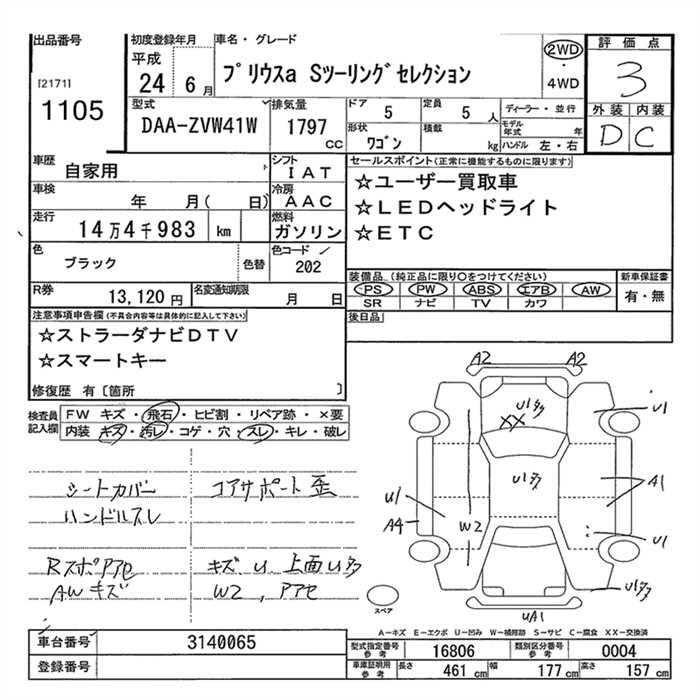 出品番号
[2171]
1105
初度登録年月
平成
24 6月
車名・グレード
プリウスa Sツーリングセレクション
2WD
・
4WD
評価点
3
外装 内装
D C
型式
DAA-ZVW41W
排気量
1797
CC
ドア
5
定員
5人
形状
ワゴン
積載
kg
ディーラー・並行
モデル年式 年
ハンドル 左・右
車歴
自家用
シフト
IAT
車検
年 月( 日)
冷房
AAC
走行
14万4千983 km
燃料
ガソリン
色
ブラック
色替
色コード /
202
R券
13,120円
名変通知期限
月 日
セールスポイント(正常に機能するものに限ります)
☆ユーザー買取車
☆LEDヘッドライト
☆ETC
装備品(純正品に限り○をつけてください)
PS PW ABS エアB AW
SR ナビ TV カワ
新車保証書
有・無
後日品
注意事項申告欄(不具合内容等は具体的に記入して下さい)
☆ストラーダナビDTV
☆スマートキー
修復歴 有〔箇所 〕
検査員記入欄
FW キズ・飛石・ヒビ割・リペア跡・×要
内装 キズ・汚レ・コゲ・穴・スレ・キレ・破レ
シートカバー
ハンドルスレ
コアサポート歪
Rスポアアセ
AWキズ
キズ、U、上面U多
W2、アアセ
A2 A2
U1多
XX
U1
U1多
A1
U1
A4
W2
U1
U1多
UA1
スペア
A―キズ E―エクボ U―凹み W―補修跡 S―サビ C―腐食 XX―交換済
車台番号
3140065
登録番号
型式指定番号
参考
16806
類別区分番号
参考
0004
車庫証明用
参考
長さ 461cm 幅 177cm 高さ 157cm